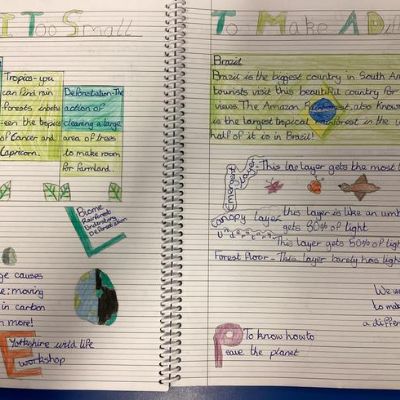 I Too Small
Tropics-you
can find rain
forests inbetw
een the tropics
of Cancer and
Capricorn.
Deforestation-The
action of
clearing a large
area of trees
to make room
for farmland.
Biome
Rainforest
Understory
Deforestation
ge causes
e: moving
in carbon
n more!
Yorkshire wild life
E workshop
To Make A Di
Brazil
Brazil is the biggest country in South Am
tourists visit this beautiful country for
views. The Amazon Rainforest, also known
is the largest tropical rainforest in the w
half of it is in Brazil!
Emergent layer - This layer gets the most l
canopy layer - this layer is like an umb
gets 80% of light
Understory - This layer gets 50% of light
Forest Floor - This layer barely has light
We w
to ma
a differ
To know how to
P eave the planet